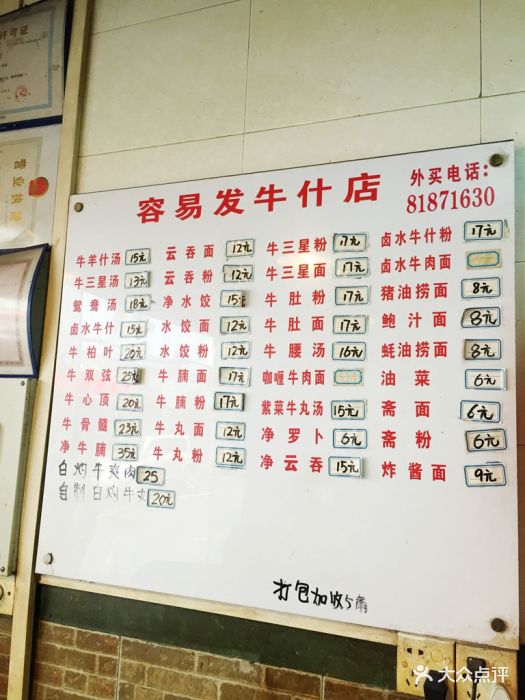 许可证
容易发牛什店
外买电话：
81871630
牛羊什汤 15元
牛三星汤 13元
鸳鸯汤 18元
卤水牛什 15元
牛柏叶 20元
牛双弦 25元
牛心顶 20元
牛骨髓 23元
净牛腩 35元
白焖牛爽肉 25
自制白焖牛 20元
云吞面 12元
云吞粉 12元
净水饺 15元
水饺面 12元
水饺粉 12元
牛腩面 17元
牛腩粉 17元
牛丸面 12元
牛丸粉 12元
牛三星粉 17元
牛三星面 17元
牛肚粉 17元
牛肚面 17元
牛腰汤 16元
咖喱牛肉面
紫菜牛丸汤 15元
净罗卜 6元
净云吞 15元
卤水牛什粉 17元
卤水牛肉面
猪油捞面 8元
鲍汁面 8元
蚝油捞面 8元
油菜 6元
斋面 6元
斋粉 6元
炸酱面 9元
打包加收5角
大众点评